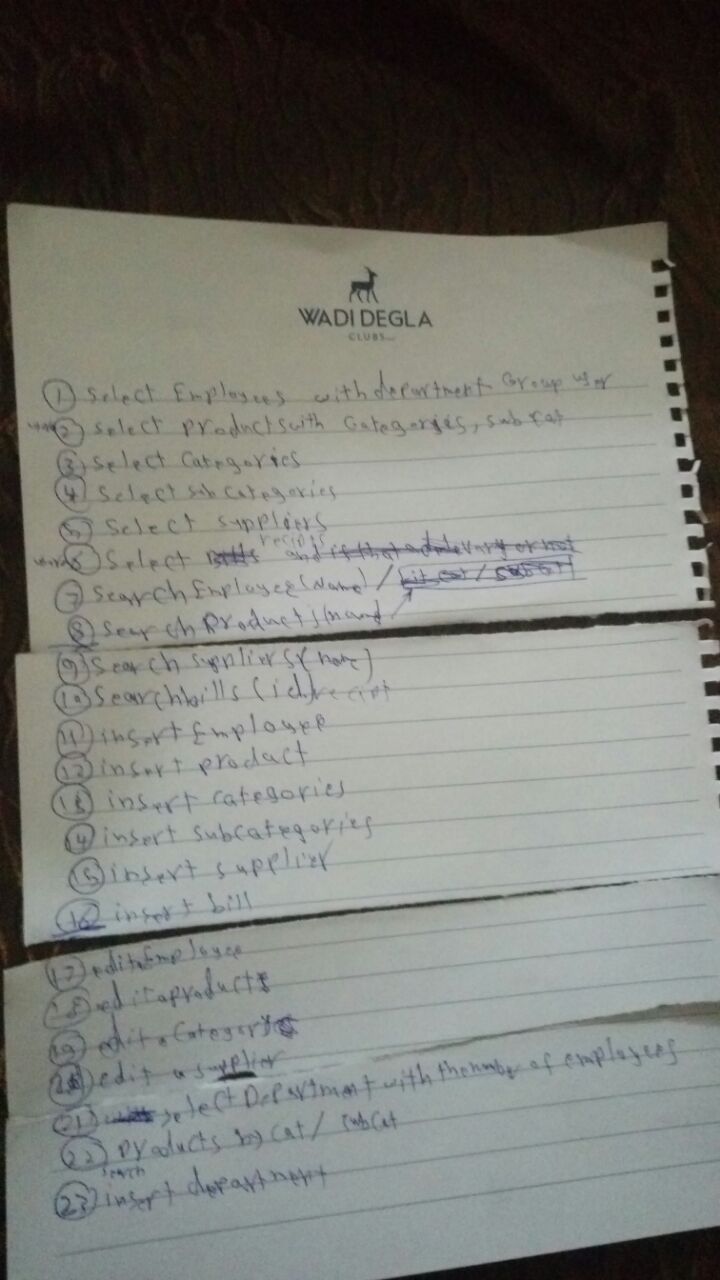 WADI DEGLA
CLUBS
① Select Employees with department Group user
② Select products with Categories, sub cat
③ Select Categories
④ Select sub categories
⑤ Select suppliers
⑥ Select recipts
⑦ Search Employee (Name) /
⑧ Search Products (name)
⑨ Search suppliers (name)
⑩ Search bills (id) recipt
⑪ insert Employee
⑫ insert product
⑬ insert categories
⑭ insert subcategories
⑮ insert supplier
⑯ insert bill
⑰ edit Employee
⑱ edit a product
⑲ edit a Category
⑳ edit a supplier
㉑ select Department with the number of employees
㉒ products by cat / subcat
search
㉓ insert department